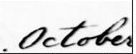 . October